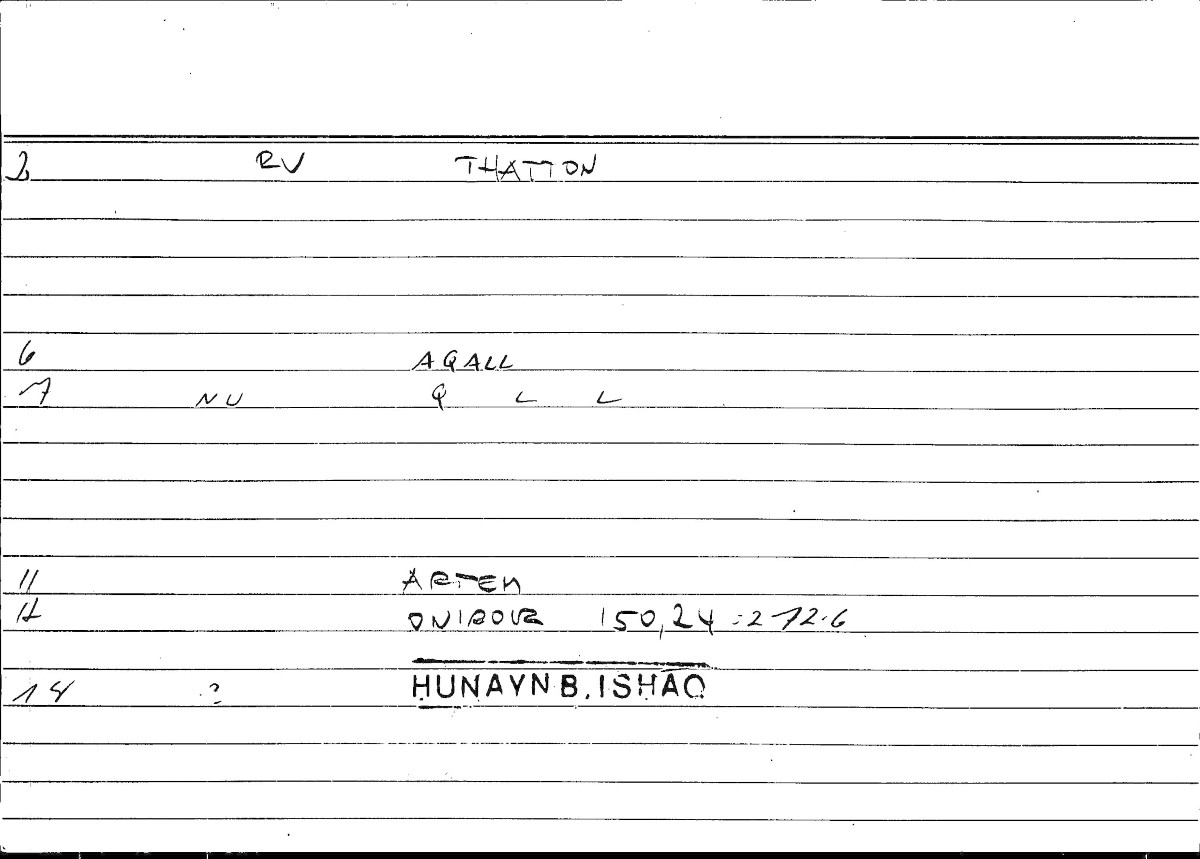 2. RV THATTON
6 AQALL
7 NU Q L L
11 ARTEM
12 ONIROUR 150,24 = 272.6
14 ? ḤUNAYN B. ISḤĀQ